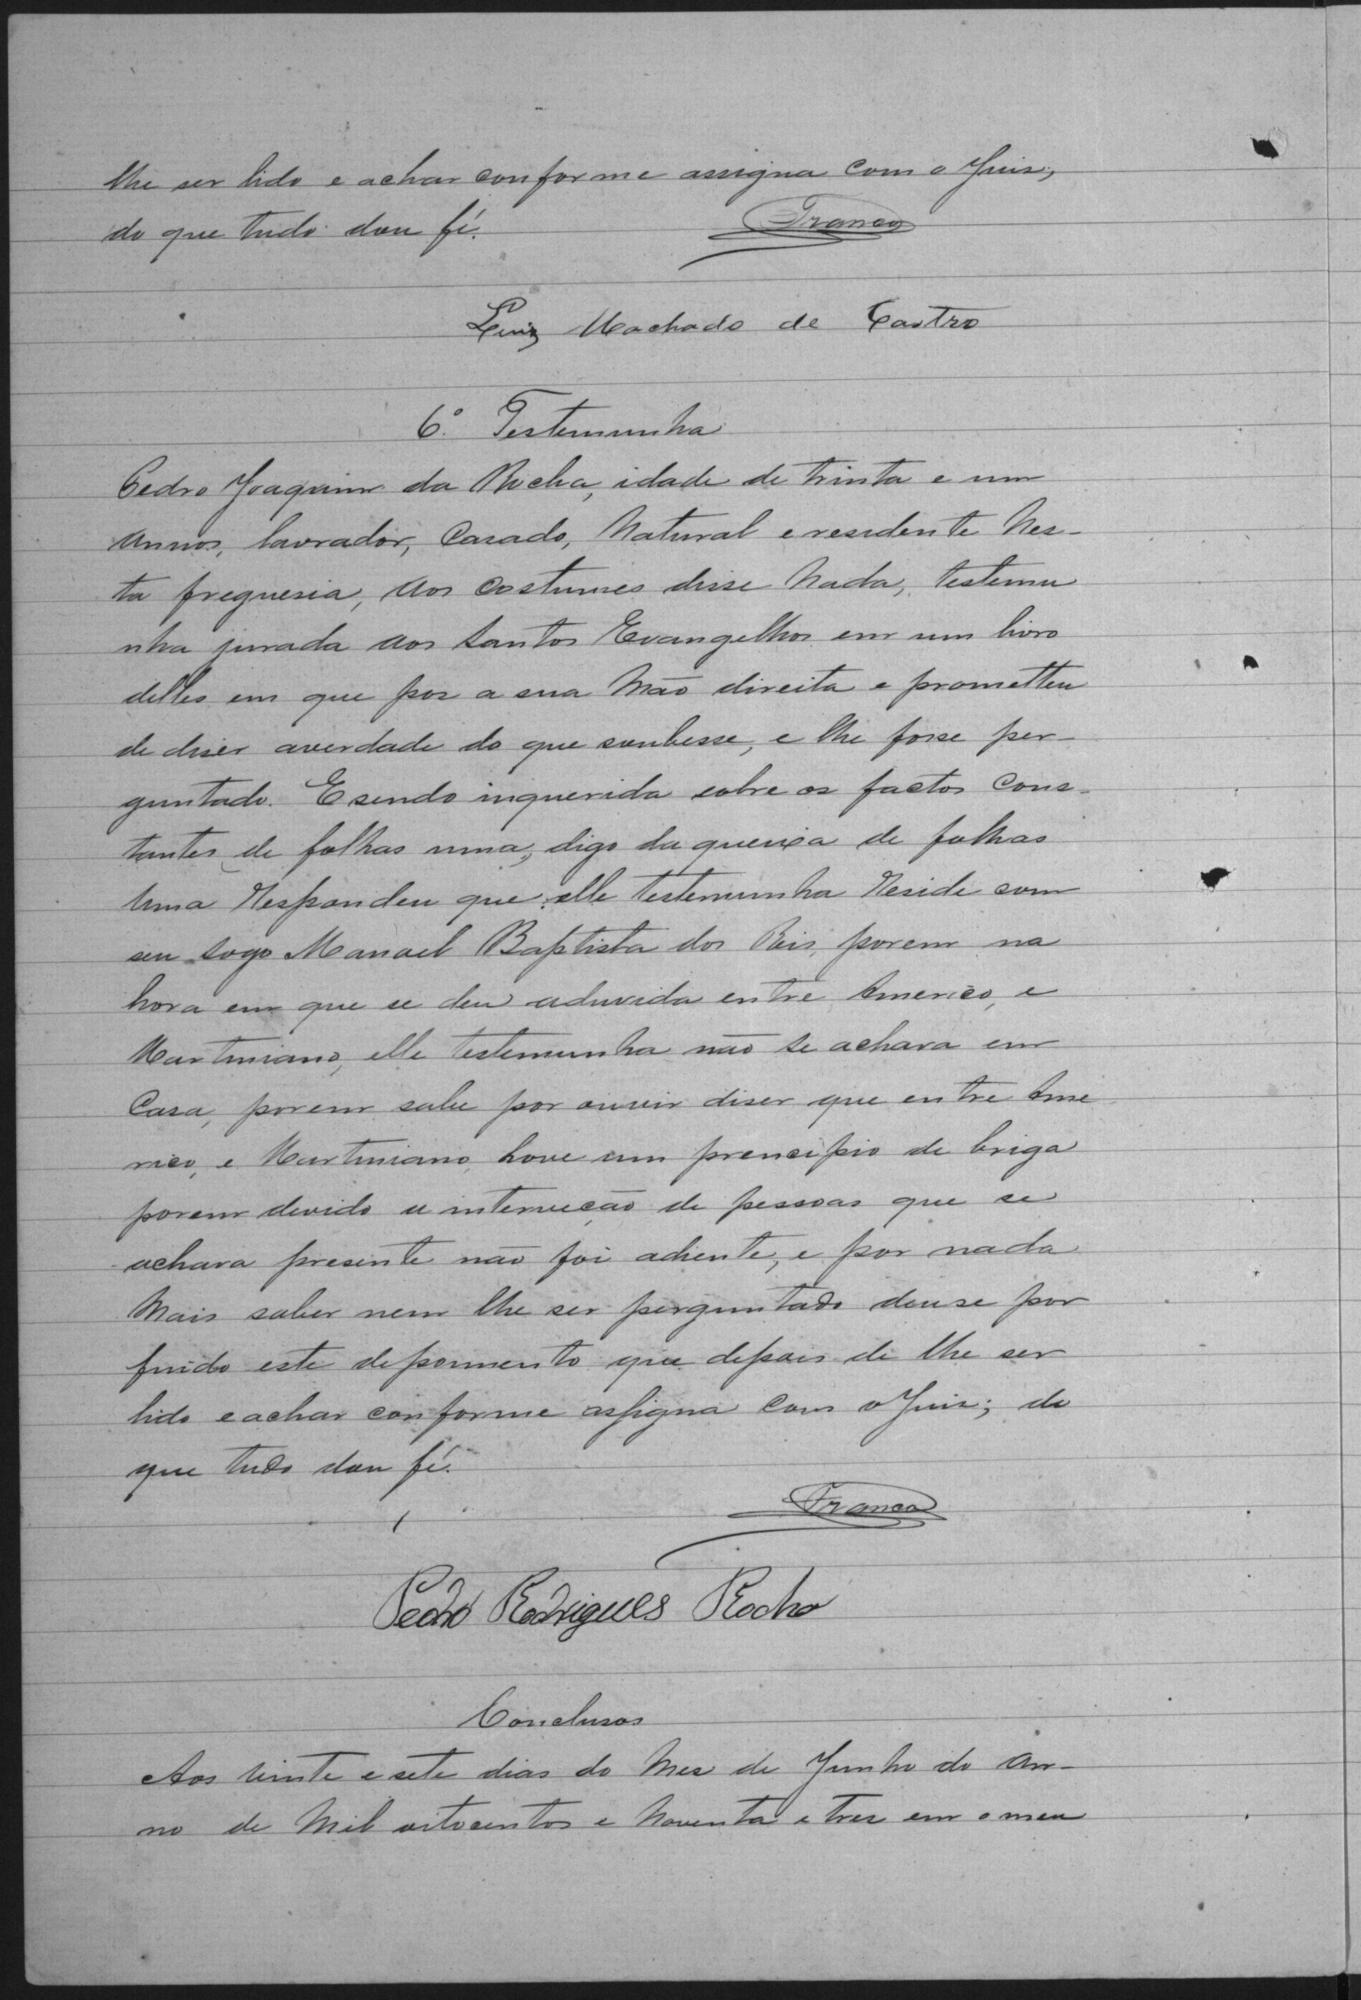 lhe ser lido e achar conforme assigna com o Juis,
do que tudo dou fé.
Franco
Luiz Machado de Castro
6ª Testemunha
Pedro Joaquim da Rocha, idade de trinta e um
annos, lavrador, Casado, Natural e residente Nes-
ta freguesia, aos costumes disse Nada, testemu
nha jurada aos Santos Evangelhos em um livro
delles em que pos a sua Mão direita e prometteu
de diser averdade do que soubesse, e lhe fosse per-
guntado. E sendo inquerida sobre os factos Cons-
tantes de folhas uma, digo da queixa de folhas
Uma Respondeu que elle testemunha Reside com
seu Sogo Manoel Baptista dos Reis, porem na
hora em que se deu aduvida entre Americo, e
Martiniano, elle testemunha não se achava em
Casa, porem sabe por ouvir diser que entre Ame
rico, e Martiniano, hove um prencipio de briga
porem devido a interveção de pessoas que se
achava presente não foi adiente, e por nada
Mais saber nem lhe ser perguntado deuse por
findo este depoimento que depois de lhe ser
lido e achar conforme assigna com o Juis; do
que tudo dou fé.
Franco
Pedro Rodrigues Rocha
Conclusos
Aos vinte e sete dias do Mes de Junho do An-
no de Mil oitocentos e Noventa e tres em o meu